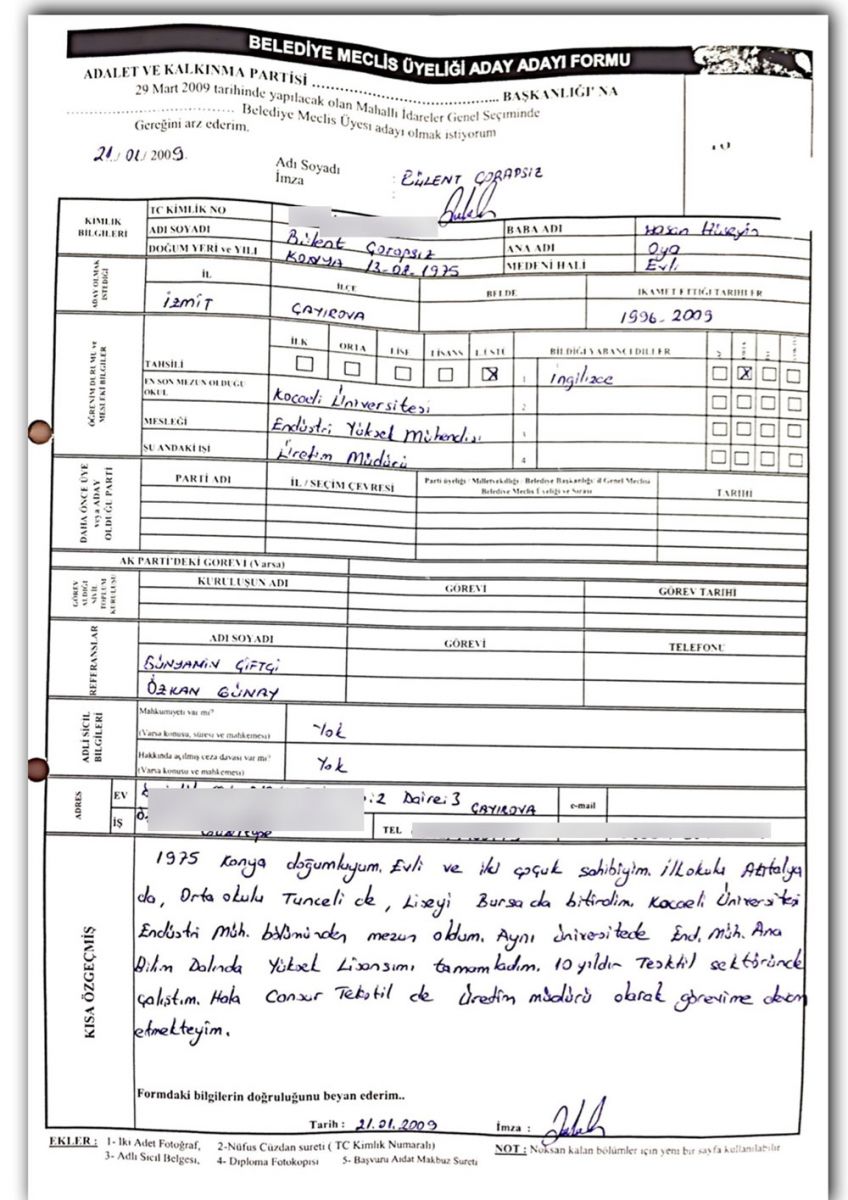 BELEDİYE MECLİS ÜYELİĞİ ADAY ADAYI FORMU
ADALET VE KALKINMA PARTİSİ .................................................. BAŞKANLIĞI' NA
29 Mart 2009 tarihinde yapılacak olan Mahalli İdareler Genel Seçiminde
............................................. Belediye Meclis Üyesi adayı olmak istiyorum
Gereğini arz ederim.
21/01/2009
Adı Soyadı : BÜLENT ÇORAPSIZ
İmza :
KİMLİK BİLGİLERİ
TC KİMLİK NO
ADI SOYADI Bülent Çorapsız
DOĞUM YERİ ve YILI KONYA 13-02-1975
BABA ADI Hasan Hüseyin
ANA ADI Oya
MEDENİ HALİ Evli
ADAY OLMAK İSTEDİĞİ
İL İLÇE BELDE İKAMET ETTİĞİ TARİHLER
İZMİT ÇAYIROVA 1996-2009
ÖĞRENİM DURUMU ve MESLEKİ BİLGİLER
TAHSİLİ İLK ORTA LİSE LİSANS L.ÜSTÜ
BİLDİĞİ YABANCI DİLLER
1 İngilizce
2
3
4
EN SON MEZUN OLDUĞU OKUL Kocaeli Üniversitesi
MESLEĞİ Endüstri Yüksek Mühendisi
ŞU ANDAKİ İŞİ Üretim Müdürü
DAHA ÖNCE ÜYE veya ADAY OLDUĞU PARTİ
PARTİ ADI İL / SEÇİM ÇEVRESİ Parti üyeliği / Milletvekilliği / Belediye Başkanlığı / il Genel Meclisi
Belediye Meclis Üyeliği ve Sırası TARİHİ
AK PARTİ'DEKİ GÖREVİ (Varsa)
GÖREV ALDIĞI SİVİL TOPLUM KURULUŞU
KURULUŞUN ADI GÖREVİ GÖREV TARİHİ
REFERANSLAR
ADI SOYADI GÖREVİ TELEFONU
BÜNYAMİN ÇİFTÇİ
ÖZKAN GÜNAY
ADLİ SİCİL BİLGİLERİ
Mahkumiyeti var mı?
(Varsa konusu, süresi ve mahkemesi) Yok
Hakkında açılmış ceza davası var mı?
(Varsa konusu ve mahkemesi) Yok
ADRES
EV :2 Daire:3 ÇAYIROVA e-mail
İŞ TEL
KISA ÖZGEÇMİŞ
1975 Konya doğumluyum. Evli ve iki çocuk sahibiyim. İlkokulu Antalya
da, Orta okulu Tunceli de, Liseyi Bursa da bitirdim. Kocaeli Üniversitesi
Endüstri Müh. bölümünden mezun oldum. Aynı üniversitede End. Müh. Ana
Bilim Dalında Yüksek Lisansımı tamamladım. 10 yıldır Tesktil sektöründe
çalıştım. Hala Tekstil de üretim müdürü olarak görevime devam
etmekteyim.
Formdaki bilgilerin doğruluğunu beyan ederim..
Tarih : 21.01.2009 İmza :
EKLER : 1- İki Adet Fotoğraf, 2-Nüfus Cüzdan sureti ( TC Kimlik Numaralı)
3- Adli Sicil Belgesi, 4- Diploma Fotokopisi 5- Başvuru Aidat Makbuz Sureti
NOT : Noksan kalan bölümler için yeni bir sayfa kullanılabilir